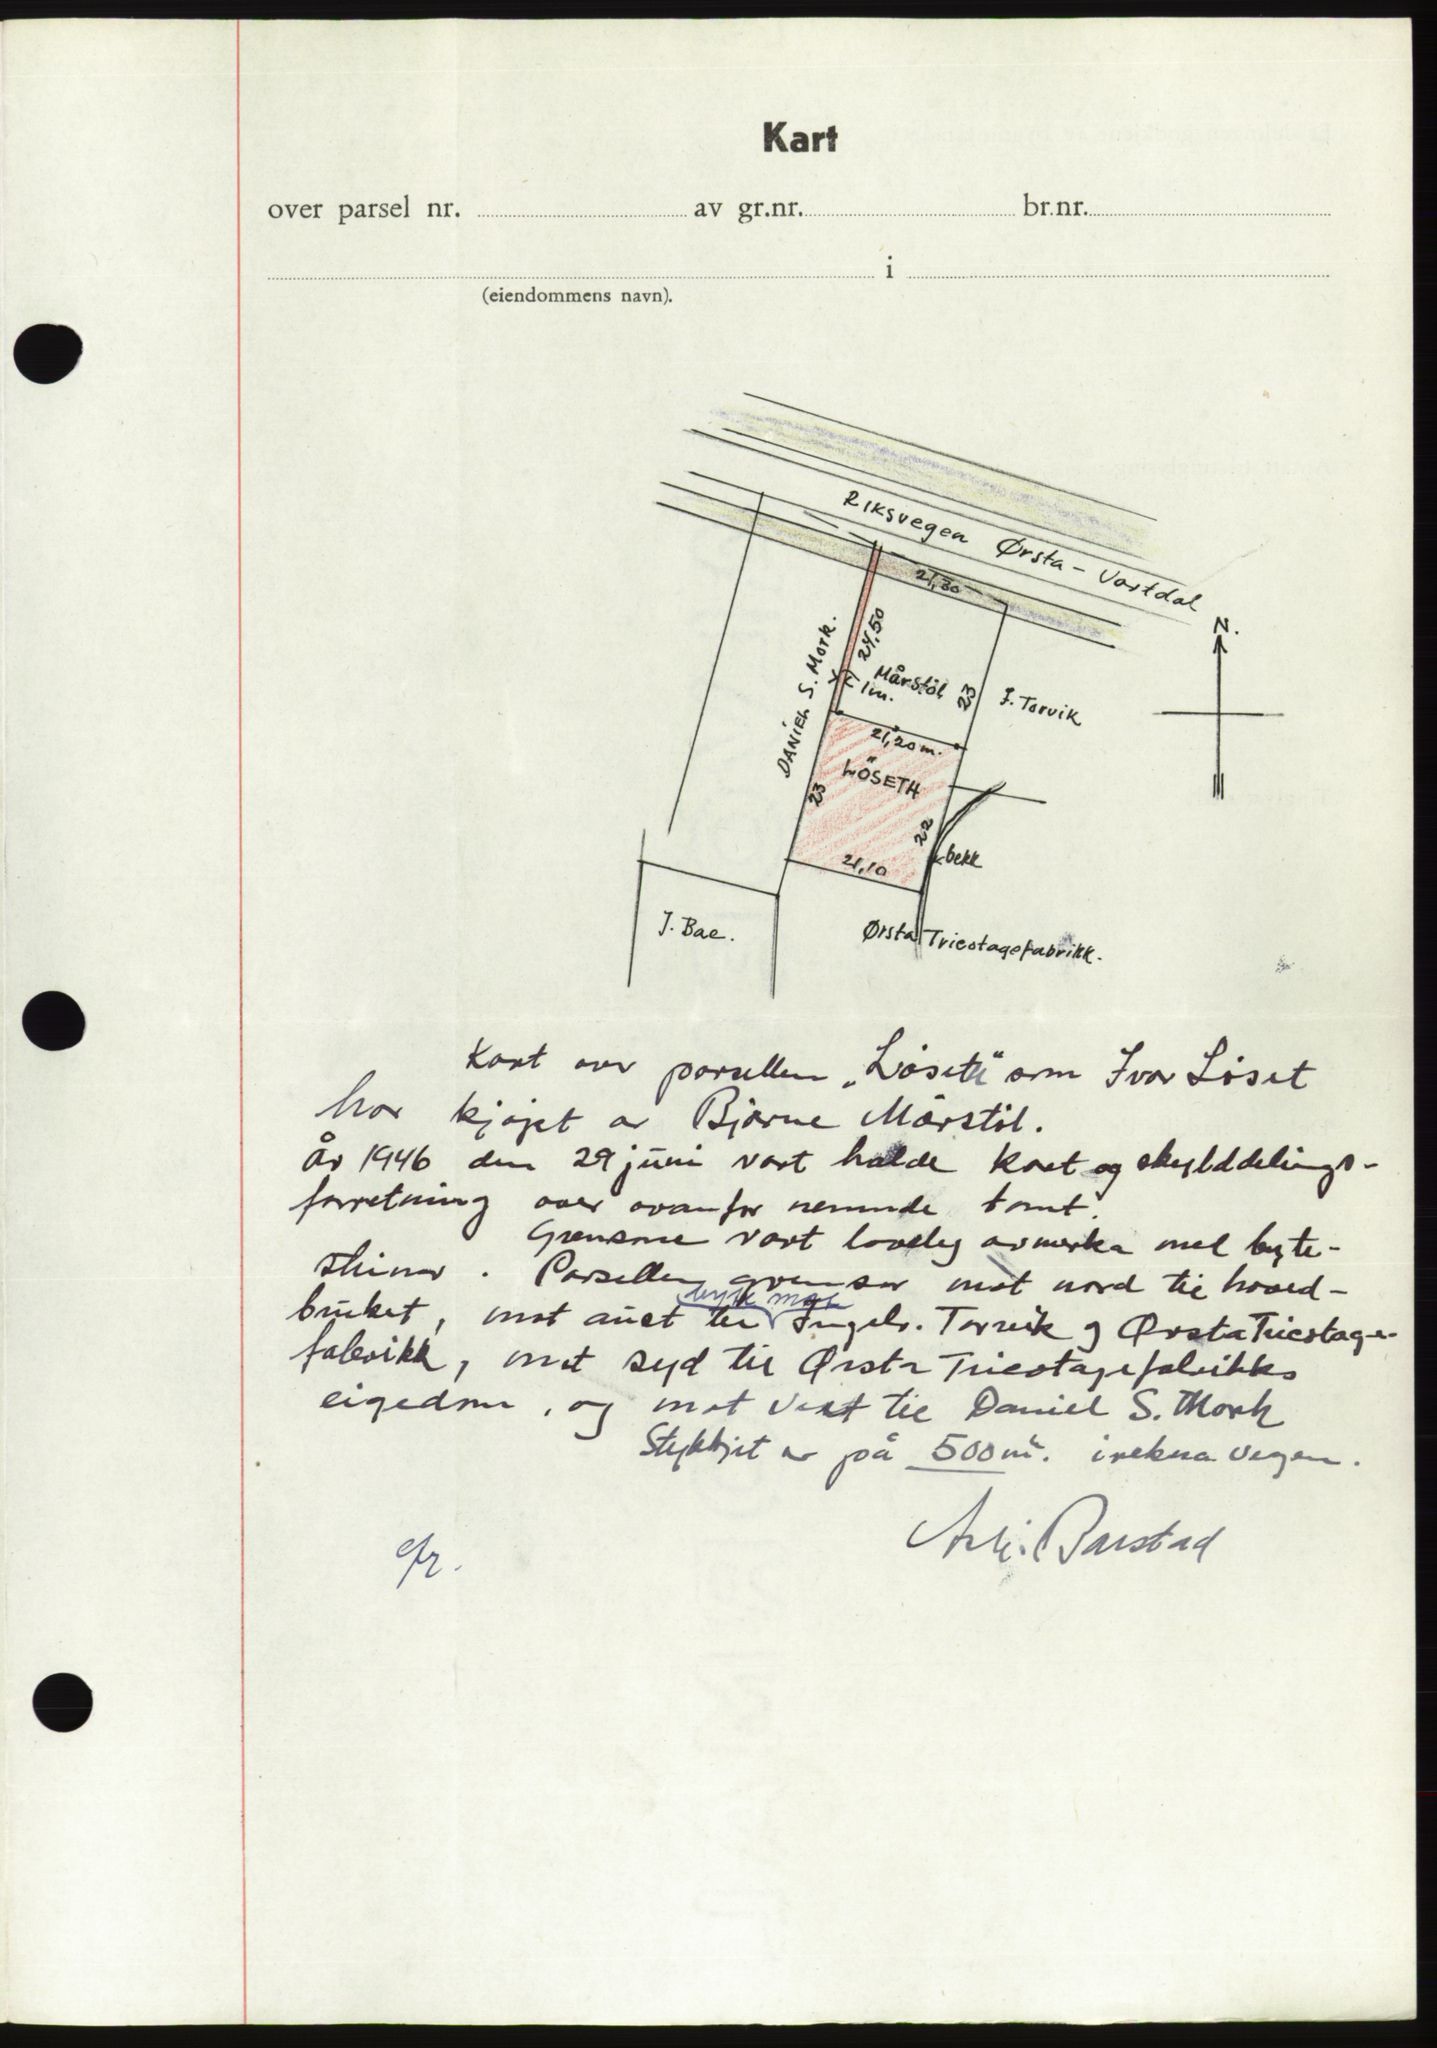 Kart
over parsel nr. av gr.nr. br.nr.
i
(eiendommens navn).
Riksvegen Ørsta - Vartdal
21,30
N.
24,50
DANIEL S. Mork.
Mårstöl
1 m.
23
J. Torvik
21,20 m.
LÖSETH
23
22
bekk
21,10
J. Bae.
Ørsta Tricotagefabrikk.
Kart over parsellen „Löseth" som Ivar Löset
har kjöpt av Bjarne Mårstöl.
År 1946 den 29 juni vart halde kart og skylddelings-
forretning over ovanfor nemnde tomt.
Grensene vart lovleg avmerka med byte-
steinar. Parsellen grensar mot nord til hoved-
bruket, mot aust til Ingebr. Torvik og Ørsta Tricotage-
fabrikk, mot syd til Ørsta Tricotagefabrikks
eigedom, og mot vest til Daniel S. Mork
Stykkjet er på 500 m². irekna vegen.
Barstad